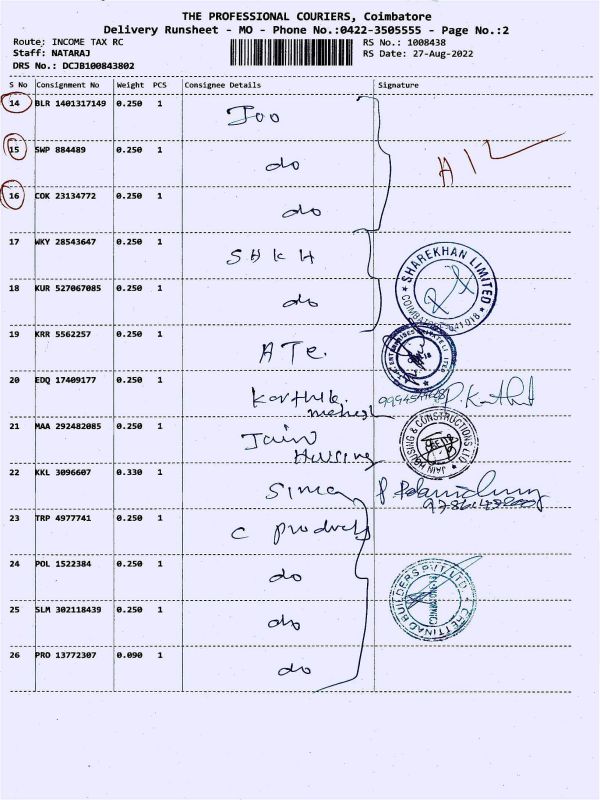 THE PROFESSIONAL COURIERS, Coimbatore
Delivery Runsheet - MO - Phone No.:0422-3505555 - Page No.:2
Route: INCOME TAX RC RS No.: 1008438
Staff: NATARAJ RS Date: 27-Aug-2022
DRS No.: DCJB100843802
S No Consignment No Weight PCS Consignee Details Signature
14 BLR 1401317149 0.250 1
15 SWP 884489 0.250 1 do
16 COK 23134772 0.250 1 do
17 WKY 28543647 0.250 1 SHKH
SHAREKHAN LIMITED
COIMBATORE-641 018
18 KUR 527067085 0.250 1 do
19 KRR 5562257 0.250 1 ATE.
20 EDQ 17409177 0.250 1 Karthik
21 MAA 292482085 0.250 1 Jain
Housing
JAIN HOUSING & CONSTRUCTIONS LTD
22 KKL 3096607 0.330 1
23 TRP 4977741 0.250 1 C products
24 POL 1522384 0.250 1 do
CHETTINAD BUILDERS PVT. LTD.
25 SLM 302118439 0.250 1 do
26 PRO 13772307 0.090 1 do